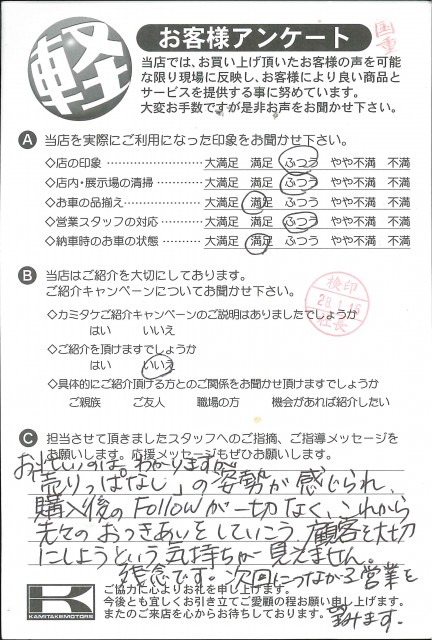 軽
お客様アンケート
国産
当店では、お買い上げ頂いたお客様の声を可能
な限り現場に反映し、お客様により良い商品と
サービスを提供する事に努めています。
大変お手数ですが是非お声をお聞かせ下さい。
A 当店を実際にご利用になった印象をお聞かせ下さい。
◇店の印象 …………………… 大満足 満足 ふつう やや不満 不満
◇店内・展示場の清掃 ………… 大満足 満足 ふつう やや不満 不満
◇お車の品揃え ……………… 大満足 満足 ふつう やや不満 不満
◇営業スタッフの対応 ………… 大満足 満足 ふつう やや不満 不満
◇納車時のお車の状態 ………… 大満足 満足 ふつう やや不満 不満
B 当店はご紹介を大切にしております。
ご紹介キャンペーンについてお聞かせ下さい。
◇カミタケご紹介キャンペーンのご説明はありましたでしょうか
はい いいえ
検印
28.1.18
社長
◇ご紹介を頂けますでしょうか
はい いいえ
◇具体的にご紹介頂ける方とのご関係をお聞かせ頂けますでしょうか
ご親族 ご友人 職場の方 機会があれば紹介したい
C 担当させて頂きましたスタッフへのご指摘、ご指導メッセージを
お願いします。応援メッセージもぜひお願いします。
お忙しいのは。わかりますが、
売りっぱなし」の姿勢が感じられ、
購入後のFollowが一切なく、これから
先々のおつきあいをしていこう、顧客を大切
にしようという気持ちが見えません。
残念です。次回につながる営業を
望みます。
K
KAMITAKEMOTORS
ご協力に心よりお礼を申し上げます。
今後とも宜しくお引き立てご愛顧の程お願い申し上げます。
またのご来店を心からお待ちしております。